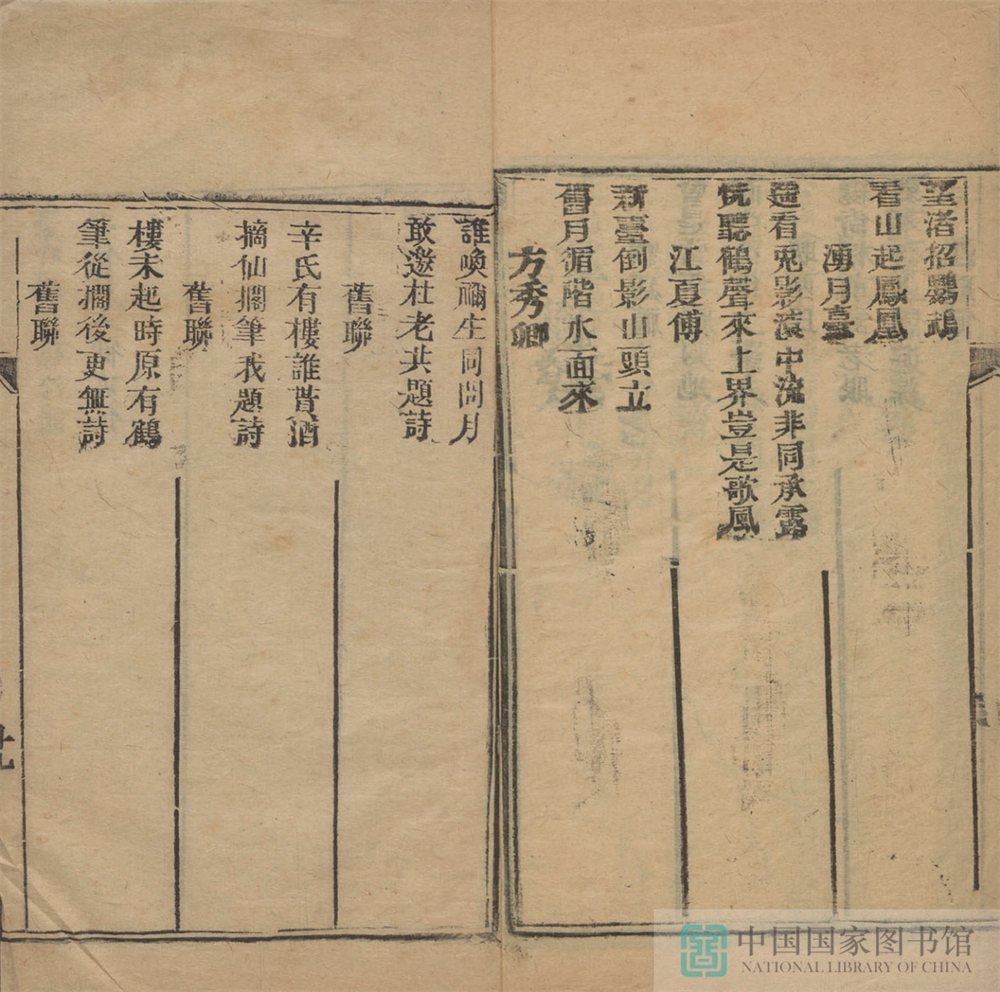 望渚招鸚鵡
看山起鳳凰
湧月臺
遥看兎影蕩中流非同承露
恍聽鶴聲來上界豈是歌風
江夏傅
新臺倒影山頭立
舊月循階水面來
方秀卿
誰喚禰生同問月
敢邀杜老共題詩
舊聯
辛氏有樓誰貰酒
摘仙擱筆我題詩
舊聯
樓未起時原有鶴
筆從擱後更無詩
舊聯
中国国家图书馆
NATIONAL LIBRARY OF CHINA